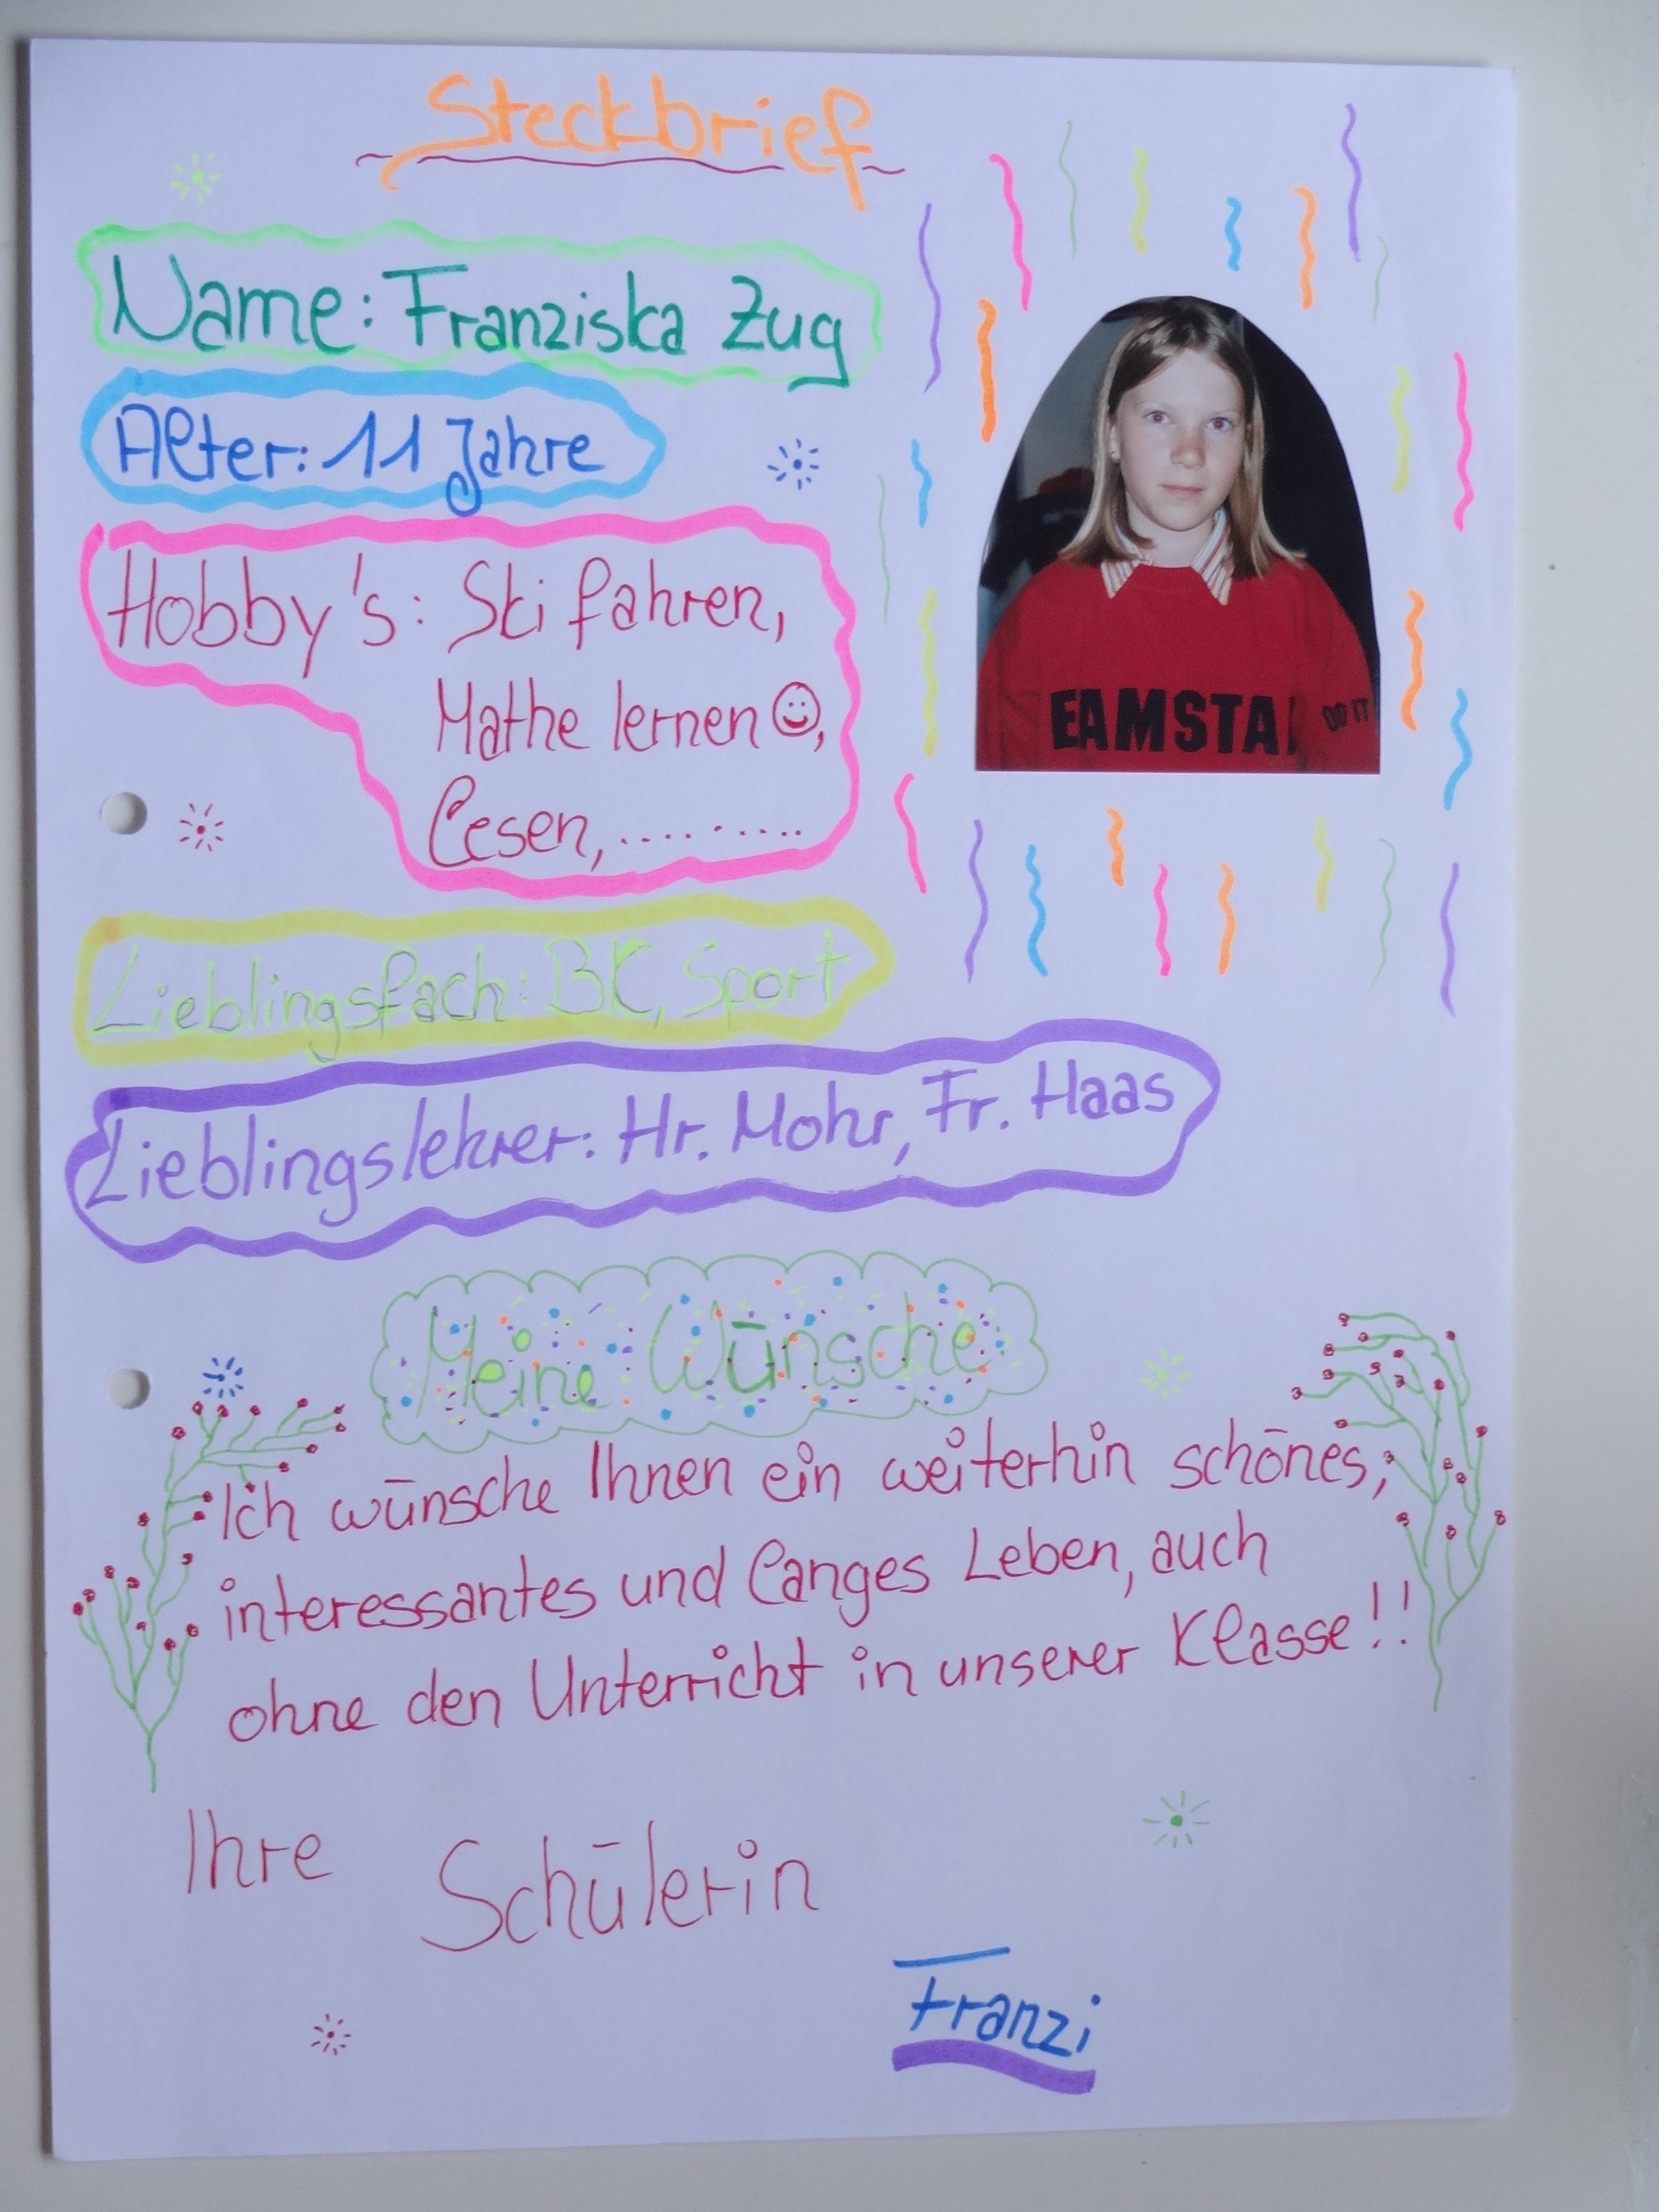 Steckbrief
Name: Franziska Zug
Alter: 11 Jahre
Hobby's: Ski fahren,
Mathe lernen ☺,
Lesen,..........
Lieblingsfach: BK, Sport
Lieblingslehrer: Hr. Mohr, Fr. Haas
EAMSTA
DO IT
Meine Wünsche
Ich wünsche Ihnen ein weiterhin schönes,
interessantes und langes Leben, auch
ohne den Unterricht in unserer Klasse!!
Ihre Schülerin
Franzi